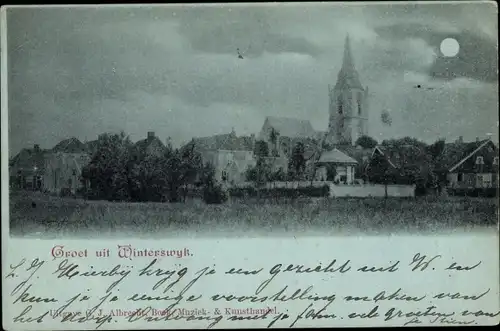 Groet uit Winterswijk.
L J. Hierbij krijg je een gezicht uit W. en
kun je je eenige voorstelling maken van
het dorp. Ontvang met je vele groeten van
Uitgave G. J. Albrecht, Boek- Muziek- & Kunsthandel.